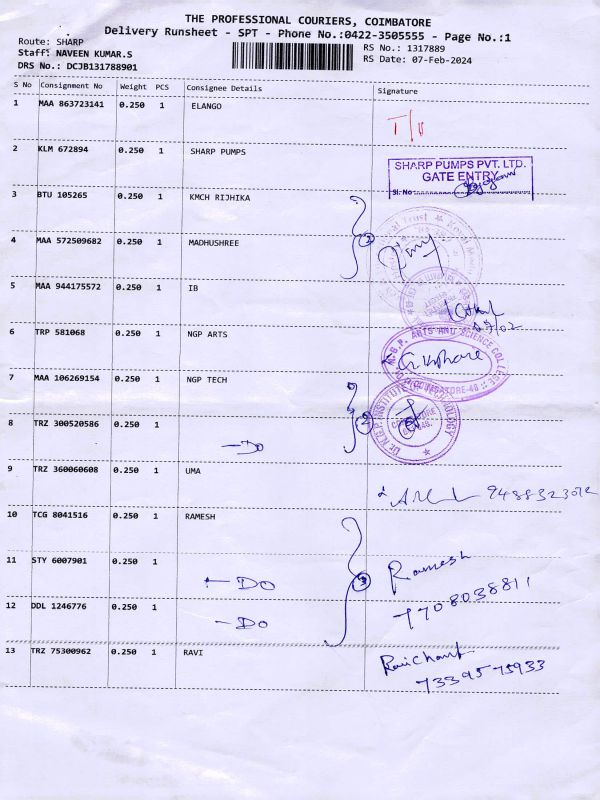 THE PROFESSIONAL COURIERS, COIMBATORE
Delivery Runsheet - SPT - Phone No.:0422-3505555 - Page No.:1
Route: SHARP
Staff: NAVEEN KUMAR.S
DRS No.: DCJB131788901
RS No.: 1317889
RS Date: 07-Feb-2024
S No Consignment No Weight PCS Consignee Details Signature
1 MAA 863723141 0.250 1 ELANGO
2 KLM 672894 0.250 1 SHARP PUMPS
SHARP PUMPS PVT. LTD.
GATE ENTRY
Sl. No
3 BTU 105265 0.250 1 KMCH RIJHIKA
4 MAA 572509682 0.250 1 MADHUSHREE 2
5 MAA 944175572 0.250 1 IB
6 TRP 581068 0.250 1 NGP ARTS
N.G.P. ARTS AND SCIENCE COLLEGE
COIMBATORE-48
7 MAA 106269154 0.250 1 NGP TECH
8 TRZ 300520586 0.250 1 -DO 2
Dr. N.G.P. INSTITUTE OF TECHNOLOGY
COIMBATORE
9 TRZ 360060608 0.250 1 UMA
10 TCG 8041516 0.250 1 RAMESH
11 STY 6007901 0.250 1 -DO 3 Ramesh
7708038811
12 DDL 1246776 0.250 1 -DO
13 TRZ 75300962 0.250 1 RAVI
7339575933